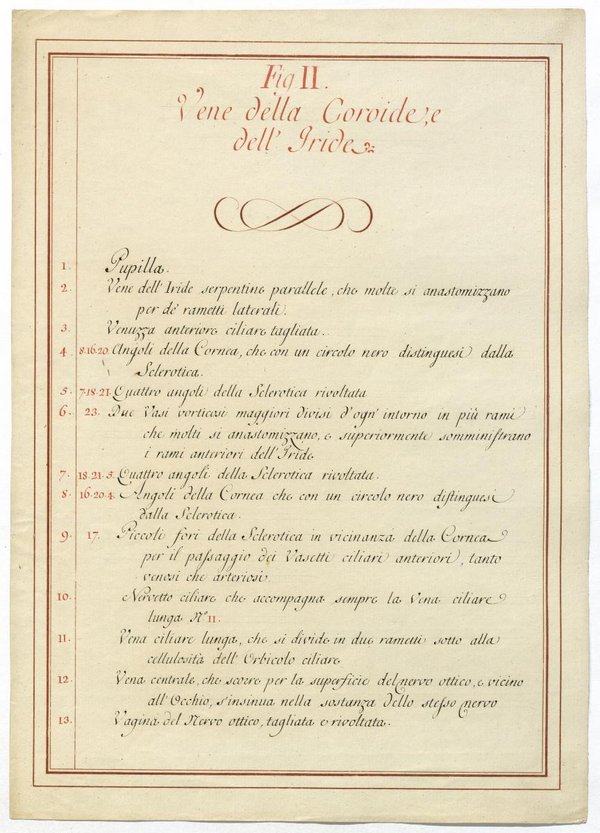 Fig II.
Vene della Coroide, e
dell' Iride
1. Pupilla.
2. Vene dell' Iride serpentine parallele, che molte si anastomizzano
per de' rametti laterali.
3. Venuzza anteriore ciliare tagliata.
4 8.16.20. Angoli della Cornea, che con un circolo nero distinguesi dalla
Sclerotica.
5. 7.18.21. Quattro angoli della Sclerotica rivoltata
6. 23. Due Vasi vorticosi maggiori divisi d'ogn' intorno in più rami
che molti si anastomizzano, e superiormente somminiſtrano
i rami anteriori dell' Iride
7. 18.21.5. Quattro angoli della Sclerotica rivoltata.
8. 16.20.4. Angoli della Cornea che con un circolo nero diſtinguesi
dalla Sclerotica.
9. 17. Piccoli fori della Sclerotica in vicinanza della Cornea
per il paſsaggio dei Vasetti ciliari anteriori, tanto
venosi che arteriosi.
10. Nervetto ciliare che accompagna sempre la Vena ciliare
lunga N.º 11.
11. Vena ciliare lunga, che si divide in due rametti sotto alla
cellulosità dell' Orbicolo ciliare
12. Vena centrale, che scorre per la superficie del nervo ottico, e vicino
all' Occhio, s'insinua nella sostanza dello steſso nervo
13. Vagina del Nervo ottico, tagliata e rivoltata.